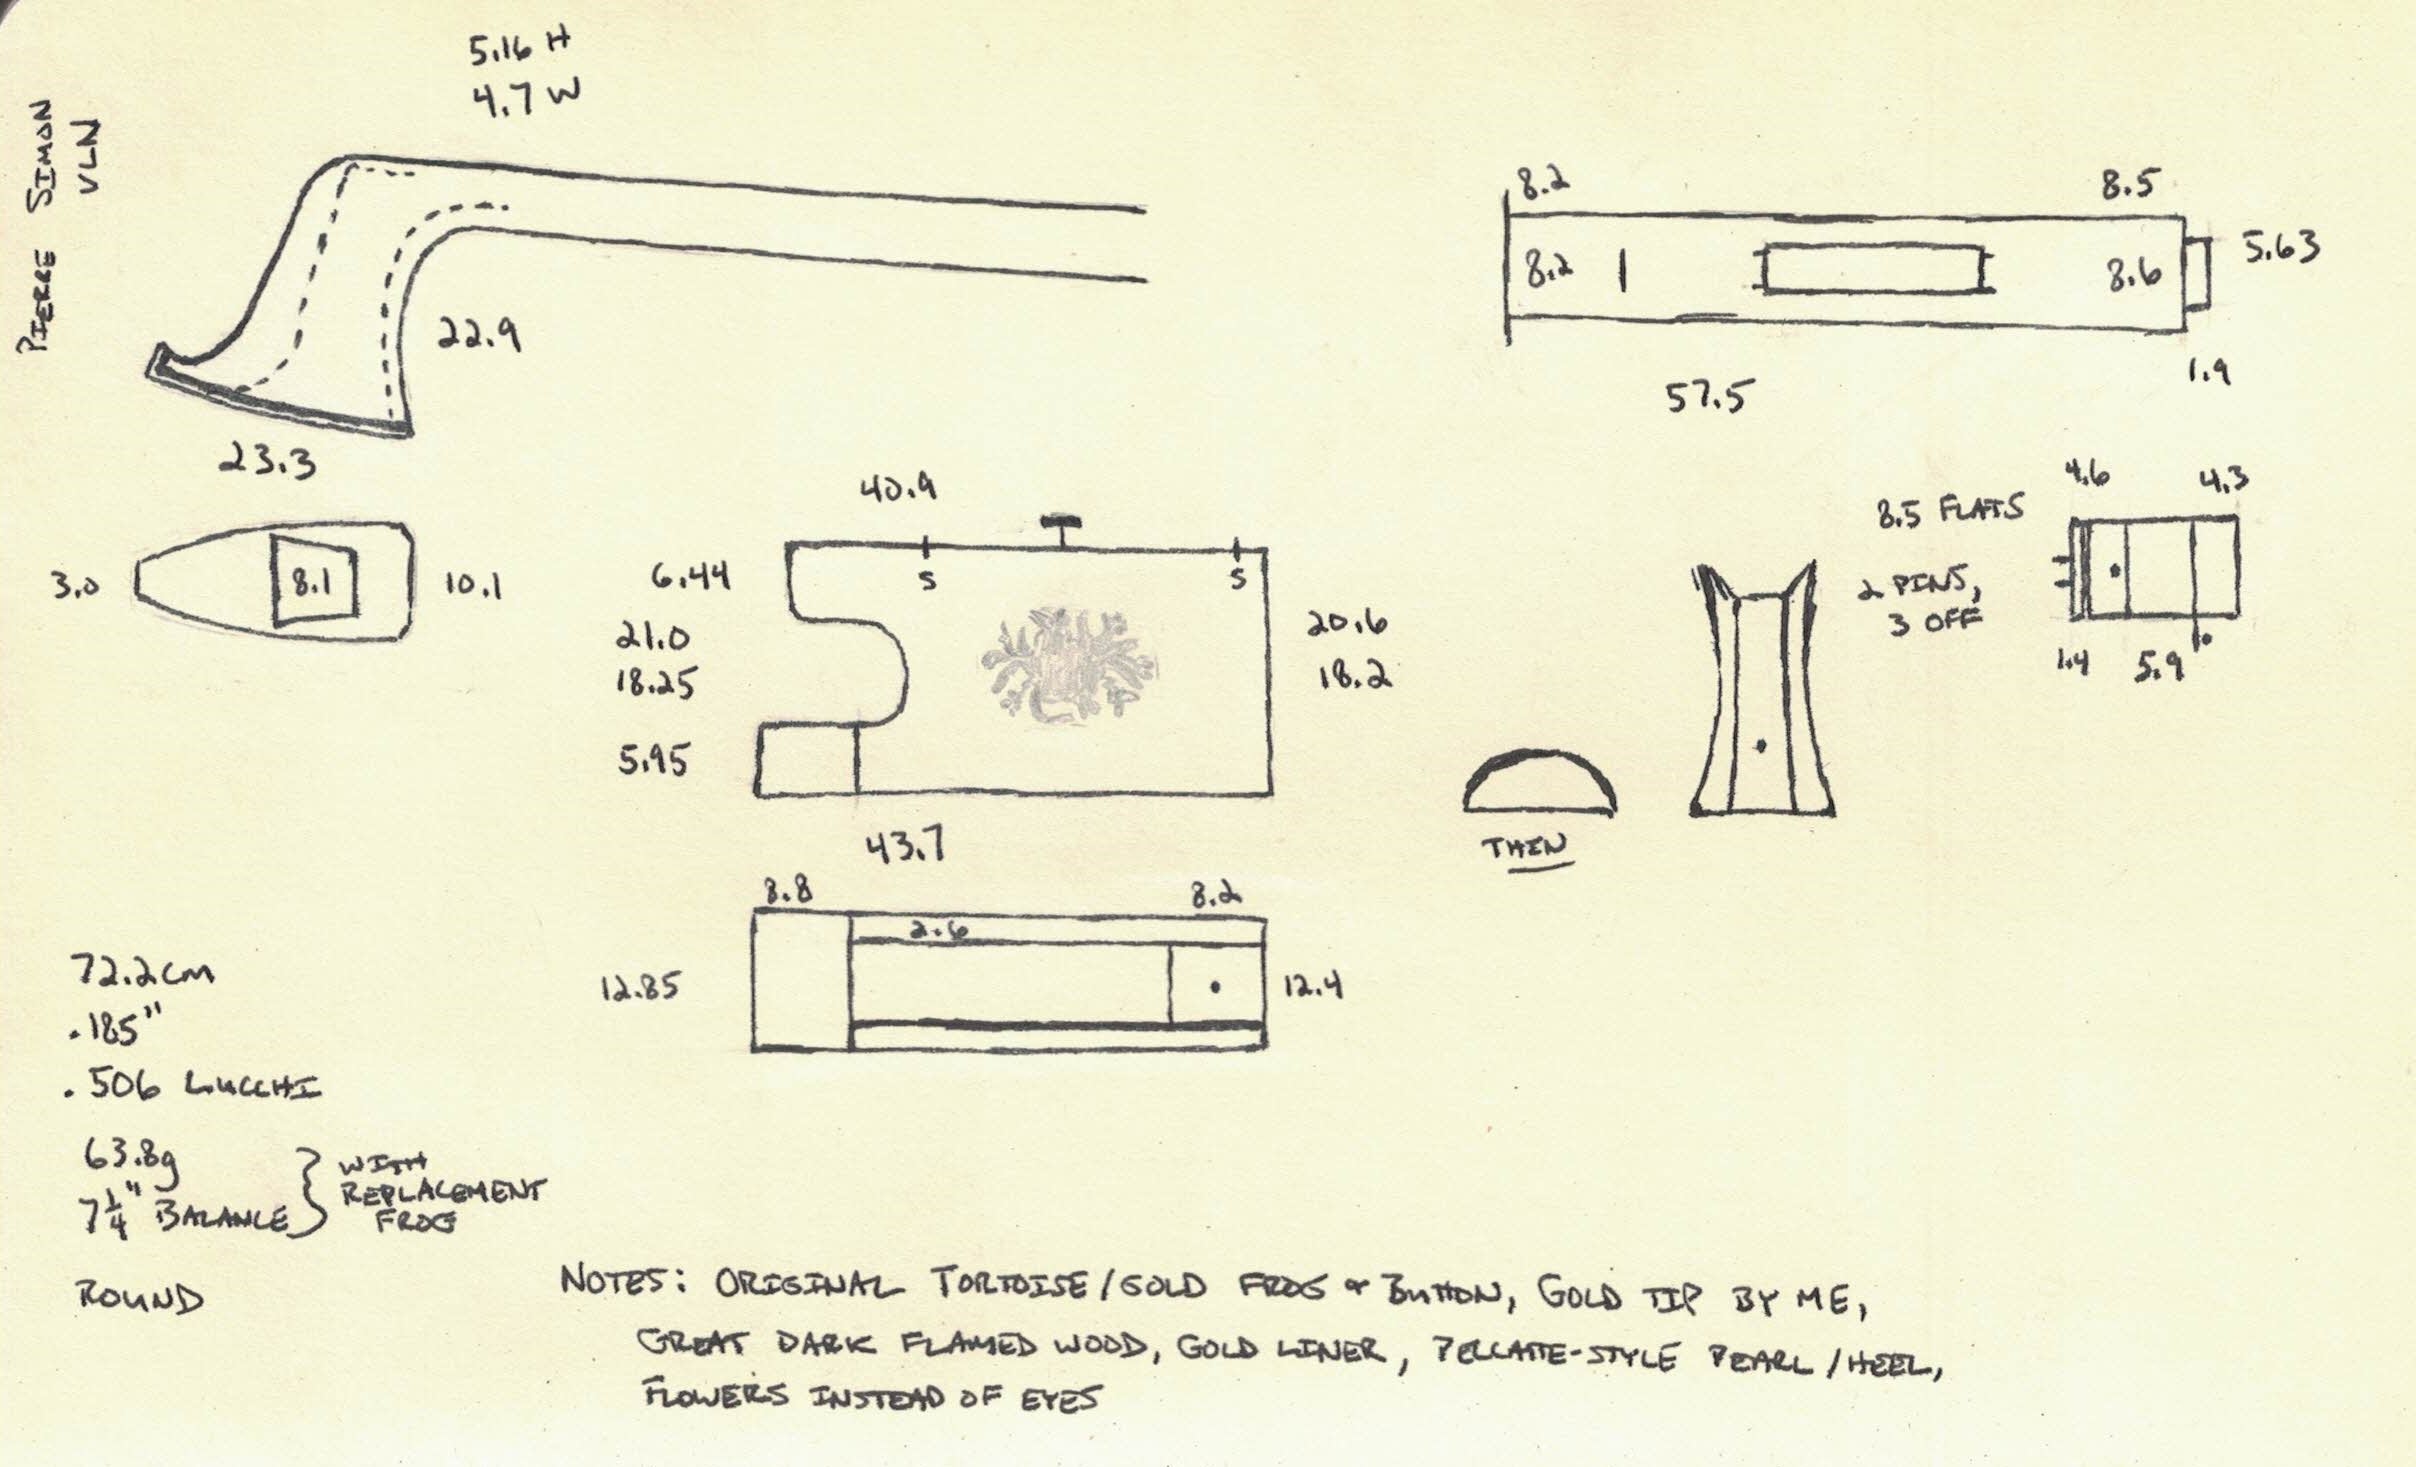 PIERRE SIMON
VLN
5.16 H
4.7 W
22.9
23.3
3.0
8.1
10.1
8.2
8.5
8.2
8.6
5.63
57.5
1.9
40.9
6.44
S
S
21.0
18.25
5.95
20.6
18.2
43.7
THIN
8.5 FLATS
2 PINS,
3 OFF
4.6
4.3
1.4
5.9
8.8
8.2
2.6
12.85
12.4
72.2cm
.185"
.506 LUCCHI
63.8g
7 1/4" BALANCE
WITH
REPLACEMENT
FROG
ROUND
NOTES: ORIGINAL TORTOISE/GOLD FROG & BUTTON, GOLD TIP BY ME,
GREAT DARK FLAMED WOOD, GOLD LINER, PECCATTE-STYLE PEARL/HEEL,
FLOWERS INSTEAD OF EYES